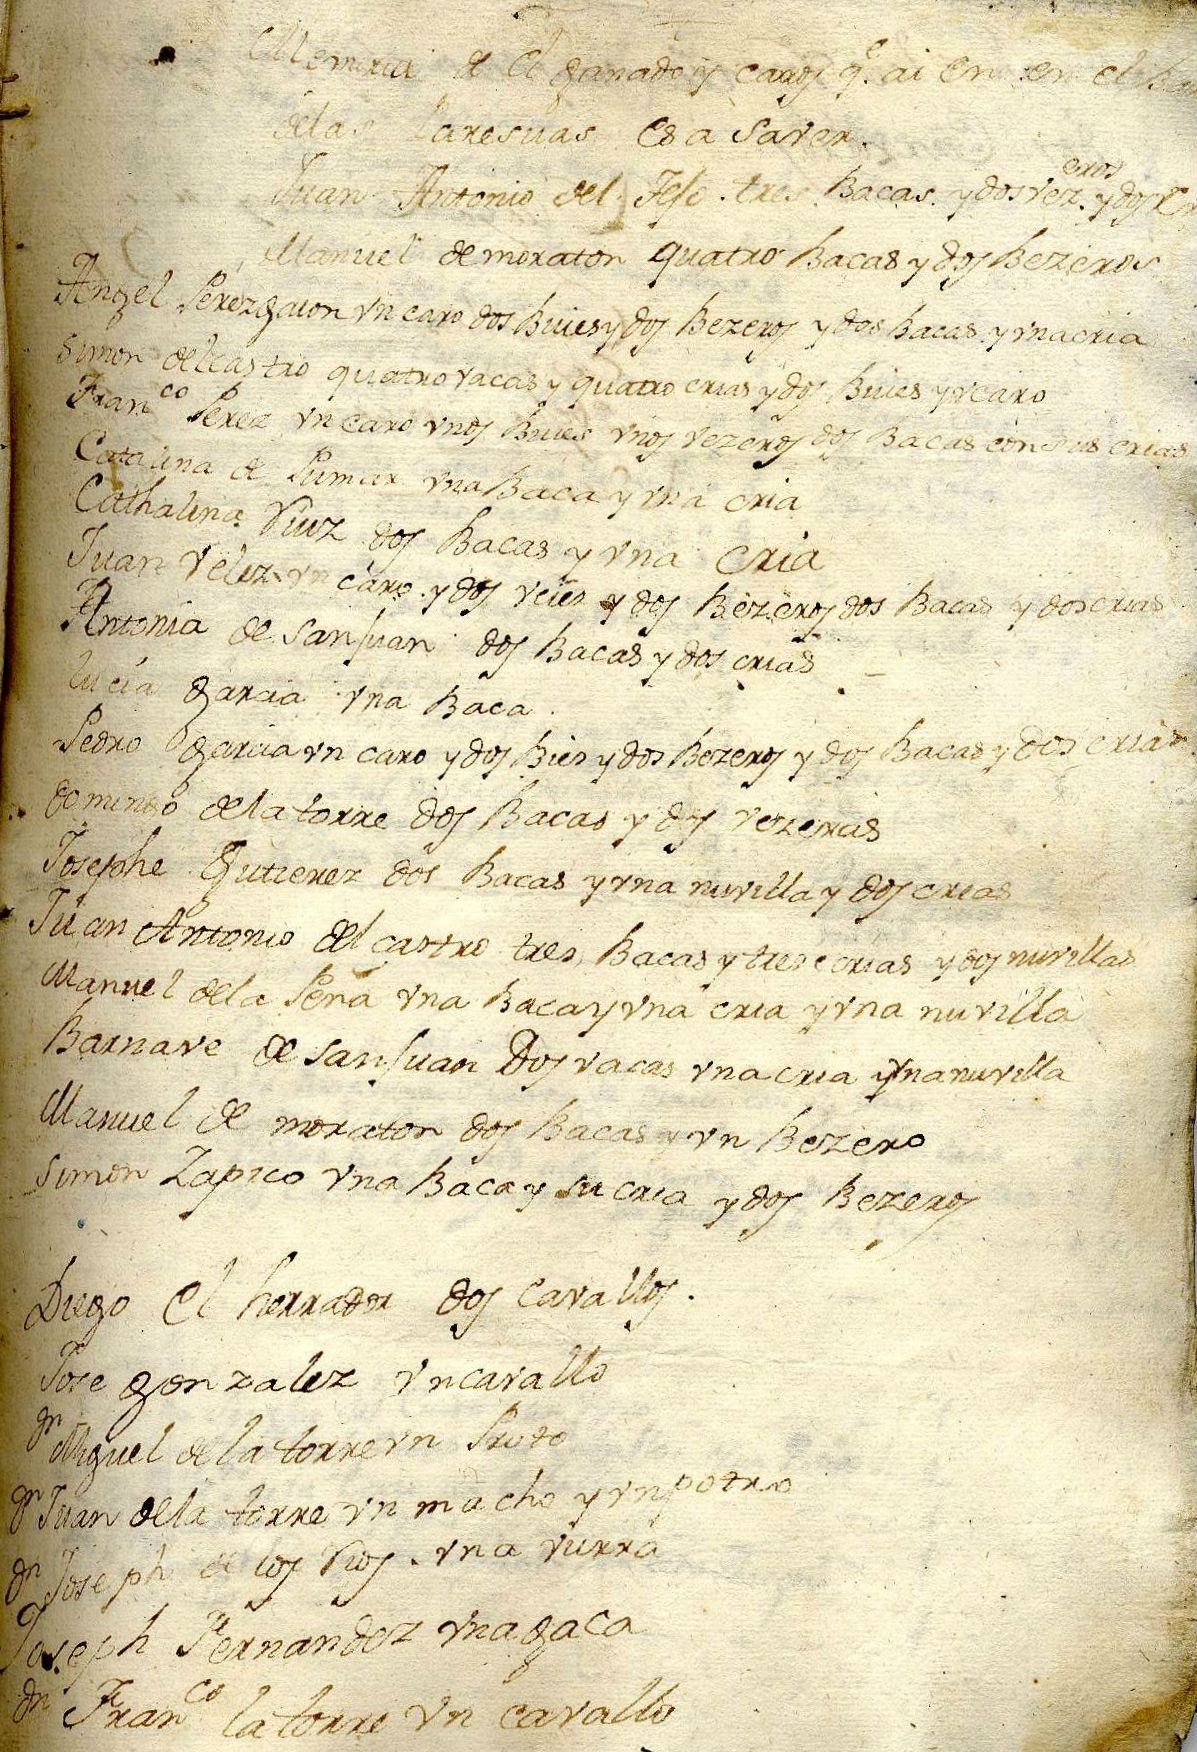 Memoria de el ganado y caros q.e ai en en el
de las Paresuas es a saver.
Juan Antonio del Jeso. tres Bacas. y dos vez.eros y dos
Manuel de moraton quatro Bacas y dos Bezeros
Angel Perez gaion vn caro dos Buies y dos Bezeros y dos bacas. y vna cria
Simon del castro quatro vacas y quatro crias y dos Buies y v caro
Fran.co Perez vn caro vnos Buies vnos vezeros dos Bacas con sus crias
Catalina de Pumar vna Baca y vna cria
Cathalina Ruiz dos Bacas y vna cria
Juan Velez vn caro. y dos veies y dos Bezeros dos Bacas y dos crias
Antonia de san Juan dos Bacas y dos crias
lucia garcia vna Baca.
Pedro garcia vn caro y dos Bies y dos Bezeros y dos Bacas y dos crias
domingo de la torre dos Bacas y dos vezeras
Josephe gutierez dos Bacas y vna nuvilla y dos crias
Juan Antonio del castro tres Bacas y tres crias y dos nuvillas
Manuel de la Peña vna Baca y vna cria y vna nuvilla
Barnave de san Juan Dos vacas vna cria y vna nuvilla
Manuel de moraton dos Bacas y vn Bezero
Simon Zapico vna Baca y su cria y dos Bezeros
Diego el herrador dos cavallos.
Jose gonzalez vn cavallo
dn Miguel de la torre vn Proto
dn Juan de la torre vn macho y vn potro
dn Joseph de los Rios. vna vurra
Joseph Fernandez vna gaca
dn Fran.co la torre vn cavallo